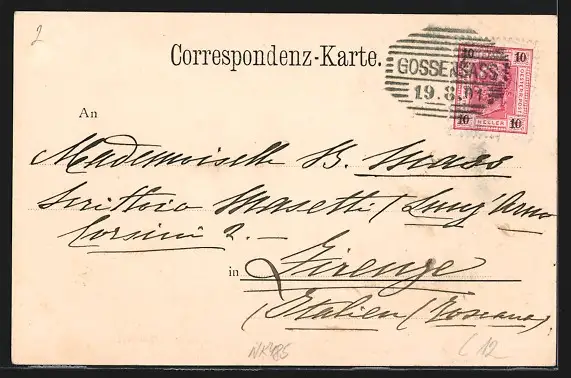 2
Correspondenz-Karte.
GOSSENSASS
19.8.01
10 10
OESTERR. POST
HELLER
10 10
An
Mademoiselle B. Maass
Scrittoio Masetti / Lung'Arno
Corsini 2. —
in Firenze
(Italien (Toscana)
NK485
L 12